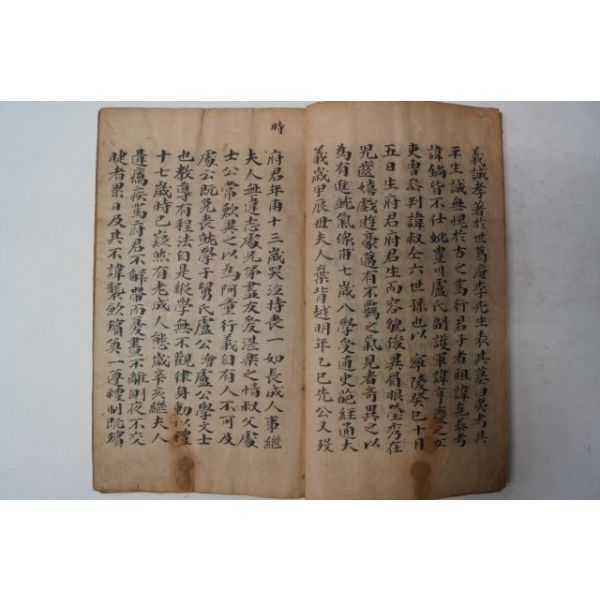 義誠孝著於世葛庵李先生表其墓曰夷考其
平生誠無愧於古之篤行君子者祖諱
諱鍋皆不仕妣豐川盧氏副護軍諱慶之女
吏曹參判諱叔仝六世孫也以 寧陵癸巳十月
五日生府君府君生而容貌俊異眉眼瑩秀在
児齒嬉戲遊豪邁有不羈之氣見者奇異之以
為有進就氣像甫七歲入學受通史詭經通大
義歲甲辰丗夫人棄背越明年乙巳先公又歿
時
府君年甫十三歲哭泣持喪一如長成人事継
夫人無違志處兄弟盡友愛湛樂之情叔父處
士公常歎異之以為阿童行義自有人不可及
處云既免喪就學于舅氏盧公澮盧公學文士
也教導有程法自是縱學無不觀律身動以禮
十七歲時已嶷然有老成人態歲辛亥継夫人
遘癘疾篤府君不解帶而憂晝不離側夜不交
睫者累日及其不諱襲歛殯奠一遵禮制既殯